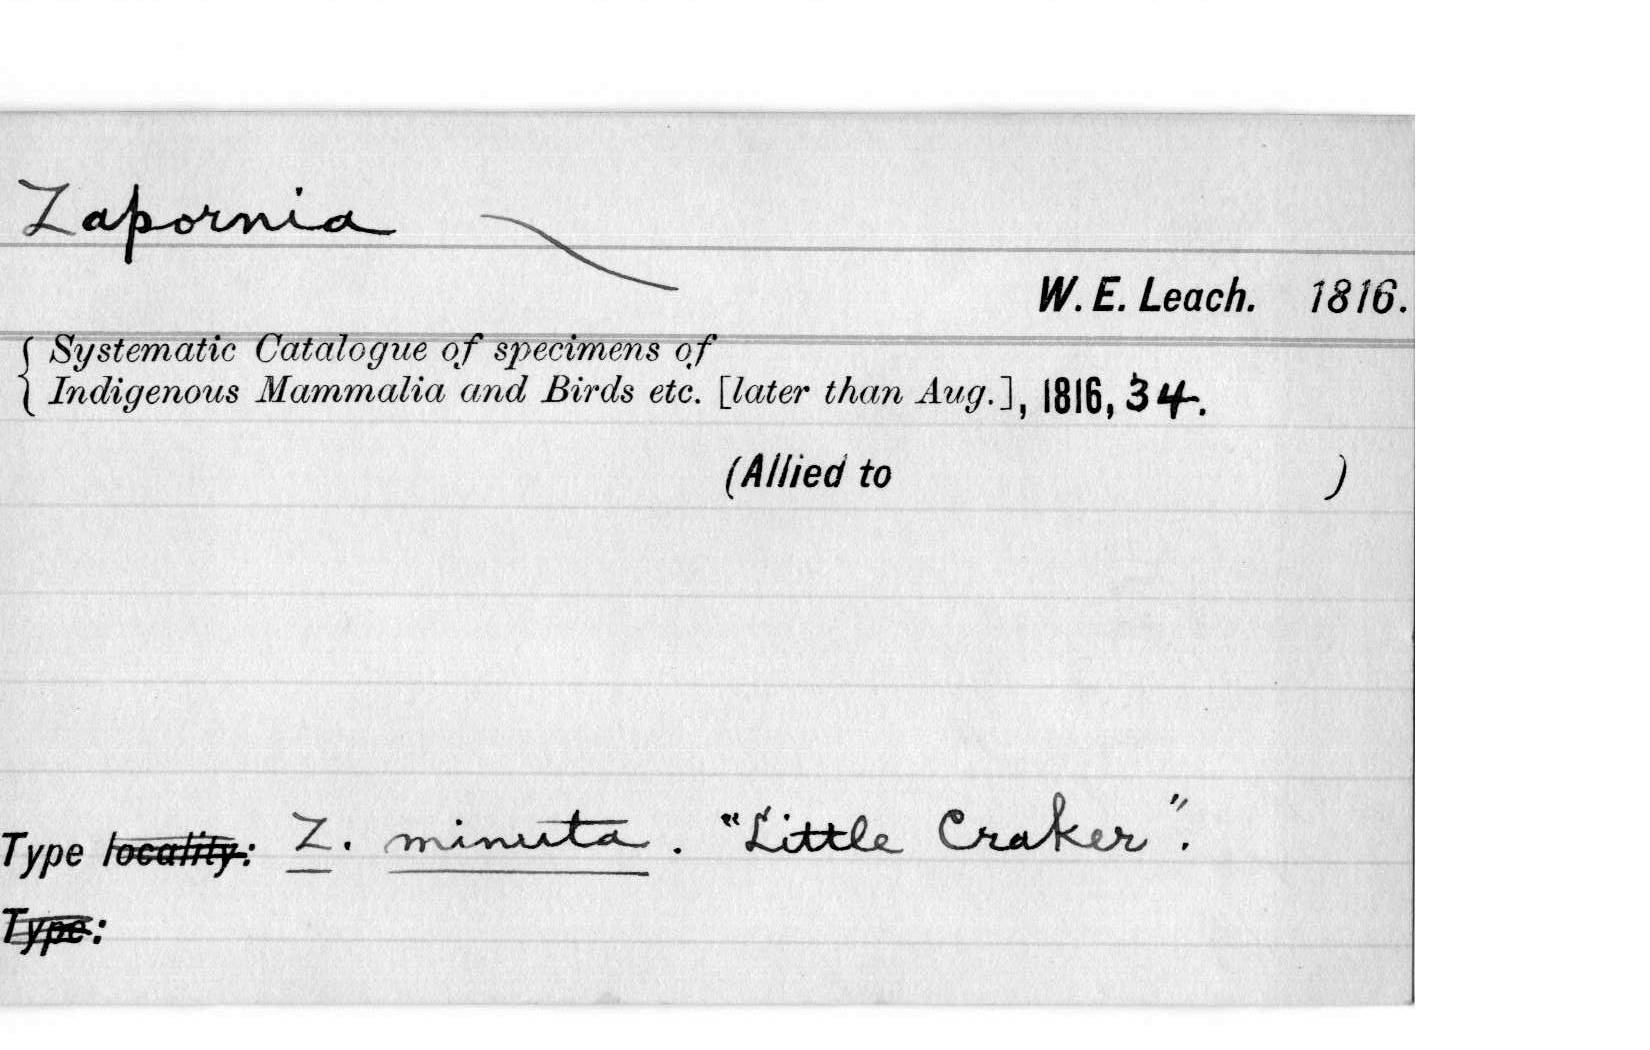 Zapornia
W. E. Leach. 1816.
Systematic Catalogue of specimens of
Indigenous Mammalia and Birds etc. [later than Aug.], 1816, 34.
(Allied to )
Type locality: Z. minuta. "Little Craker".
Type: